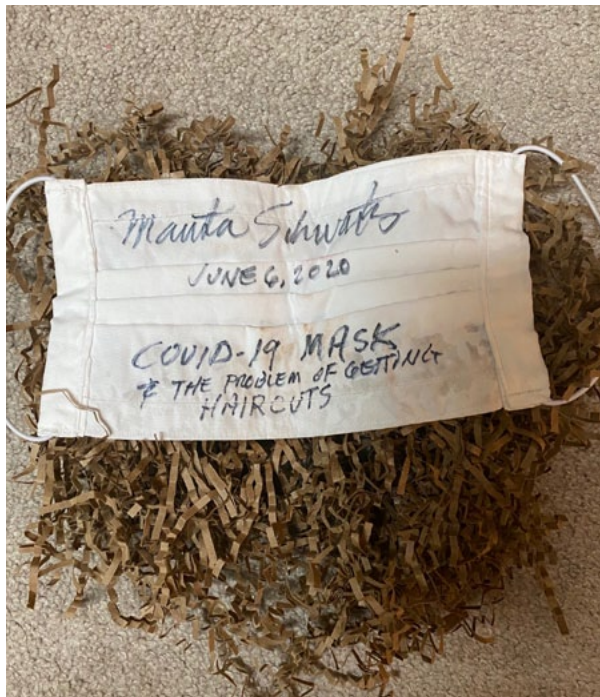 Manta Schwitts
JUNE 6, 2020
COVID-19 MASK
& THE PROBLEM OF GETTING
HAIRCUTS